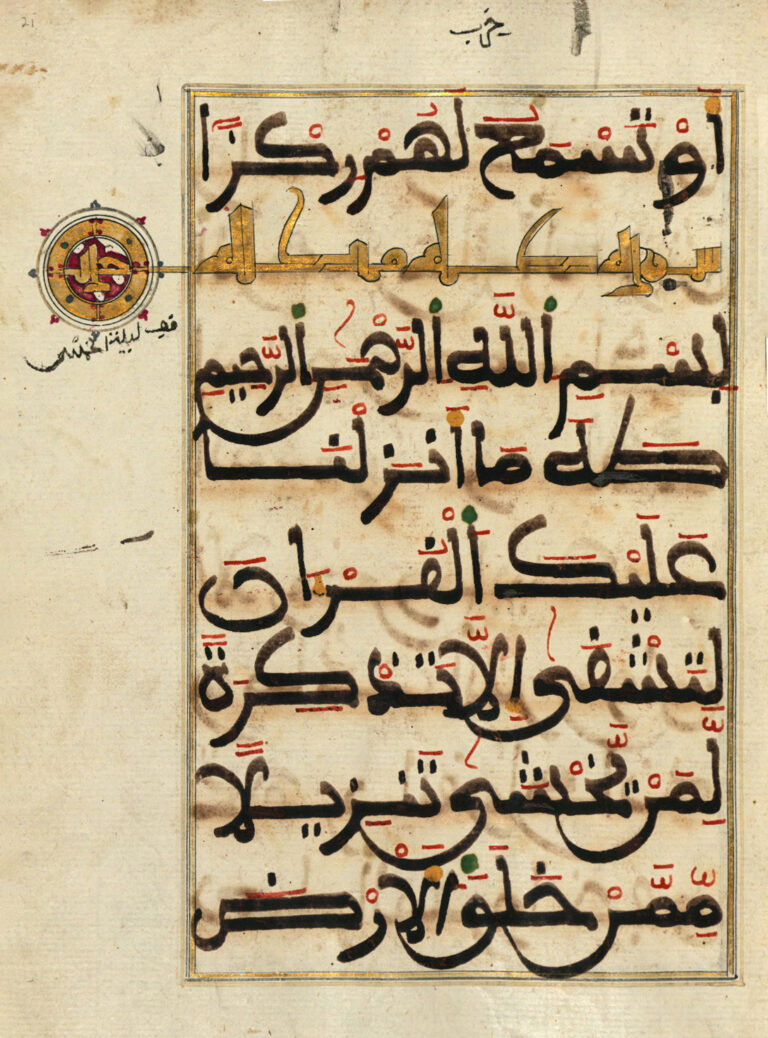 21
حزب
أَوْ تَسْمَعُ لَهُمْ رِكْزًا
سورة طه مكية
قف ليلة
بِسْمِ اللَّهِ الرَّحْمَٰنِ الرَّحِيمِ
طَهَ مَا أَنزَلْنَا
عَلَيْكَ الْقُرْءَانَ
لِتَشْقَىٰ إِلَّا تَذْكِرَةً
لِّمَنْ يَّخْشَىٰ تَنزِيلًا
مِّمَّنْ خَلَقَ الْأَرْضَ